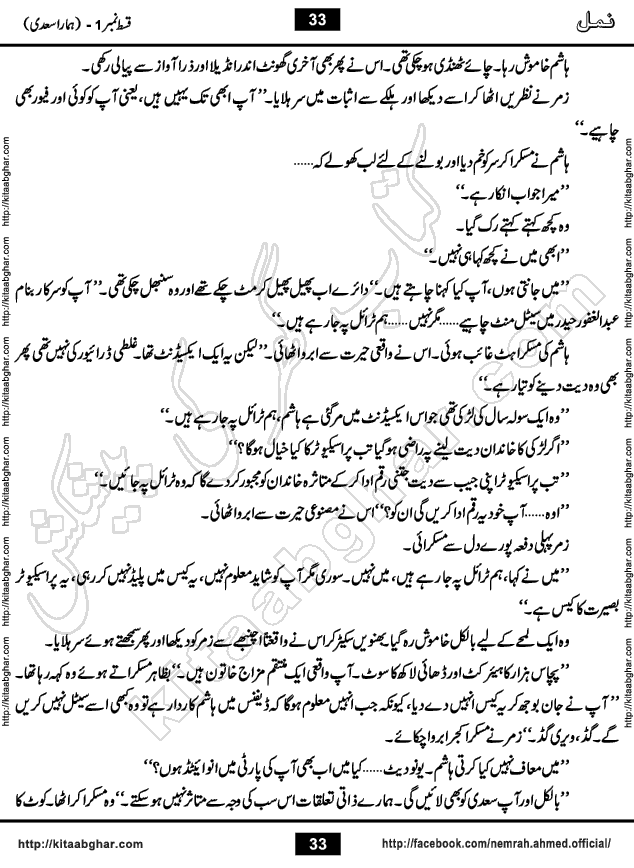 نمل
33
قسط نمبر 1 - (ہمارا سعدی)
ہاشم خاموش رہا۔ چائے ٹھنڈی ہو چکی تھی۔ اس نے پھر بھی آخری گھونٹ اندر انڈیلا اور ذرا آواز سے پیالی رکھی۔
زمر نے نظریں اٹھا کر اسے دیکھا اور ہلکے سے اثبات میں سر ہلایا۔ ”آپ ابھی تک یہیں ہیں، یعنی آپ کو کوئی اور فیور بھی
چاہیے۔“
ہاشم نے مسکرا کر سر کو خم دیا اور بولنے کے لئے لب کھولے کہ......
”میرا جواب انکار ہے۔“
وہ کچھ کہتے کہتے رک گیا۔
”ابھی میں نے کچھ کہا ہی نہیں۔“
”میں جانتی ہوں، آپ کیا کہنا چاہتے ہیں۔“ دائرے اب پھیل پھیل کر مٹ چکے تھے اور وہ سنبھل چکی تھی۔ ”آپ کو سرکار بنام
عبدالغفور حیدر میں سیٹل منٹ چاہیے...... مگر نہیں...... ہم ٹرائل پہ جا رہے ہیں۔“
ہاشم کی مسکراہٹ غائب ہوئی۔ اس نے واقعی حیرت سے ابرو اٹھائی۔ ”لیکن یہ ایک ایکسیڈنٹ تھا۔ غلطی ڈرائیور کی نہیں تھی پھر
بھی وہ دیت دینے کو تیار ہے۔“
”وہ ایک سولہ سال کی لڑکی تھی جو اس ایکسیڈنٹ میں مر گئی ہے ہاشم، ہم ٹرائل پہ جا رہے ہیں۔“
”اگر لڑکی کا خاندان دیت لینے پہ راضی ہو گیا تب پراسیکیوٹر کا کیا خیال ہو گا؟“
”تب پراسیکیوٹر اپنی جیب سے دیت جتنی رقم ادا کر کے متاثرہ خاندان کو مجبور کر دے گا کہ وہ ٹرائل پہ جائیں۔“
”اوہ...... آپ خود یہ رقم ادا کریں گی ان کو؟“ اس نے مصنوعی حیرت سے ابرو اٹھائی۔
زمر پہلی دفعہ پورے دل سے مسکرائی۔
”میں نے کہا، ہم ٹرائل پہ جا رہے ہیں، میں نہیں۔ سوری مگر آپ کو شاید معلوم نہیں، یہ کیس میں پلیڈ نہیں کر رہی، یہ پراسیکیوٹر
بصیرت کا کیس ہے۔“
وہ ایک لمحے کے لیے بالکل خاموش رہ گیا۔ بھنویں سکیڑ کر اس نے واقعتاً اچنبھے سے زمر کو دیکھا اور پھر سمجھتے ہوئے سر ہلایا۔
”پچاس ہزار کا ہیئر کٹ اور ڈھائی لاکھ کا سوٹ۔ آپ واقعی ایک منتقم مزاج خاتون ہیں۔“ بظاہر مسکراتے ہوئے وہ کہہ رہا تھا۔
”آپ نے جان بوجھ کر یہ کیس انہیں دے دیا، کیونکہ جب انہیں معلوم ہو گا کہ ڈیفنس میں ہاشم کاردار ہے تو وہ کبھی اسے سیٹل نہیں کریں
گے۔ گڈ، ویری گڈ۔“ زمر نے مسکرا کر ابرو اچکائے۔
”میں معاف نہیں کیا کرتی ہاشم۔ یو نو ویٹ...... کیا میں اب بھی آپ کی پارٹی میں انوائیٹڈ ہوں؟“
”بالکل اور آپ سعدی کو بھی لائیں گی۔ ہمارے ذاتی تعلقات اس سب کی وجہ سے متاثر نہیں ہو سکتے۔“ وہ مسکرا کر اٹھا۔ کوٹ کا
http://kitaabghar.com
33
http://facebook.com/nemrah.ahmed.official/
http://kitaabghar.com http://kitaabghar.com http://kitaabghar.com http://kitaabghar.com http://kitaabghar.com http://kitaabghar.com
http://kitaabghar.com http://kitaabghar.com http://kitaabghar.com http://kitaabghar.com http://kitaabghar.com http://kitaabghar.com
کتاب گھر کی پیشکش
kitaabghar.com